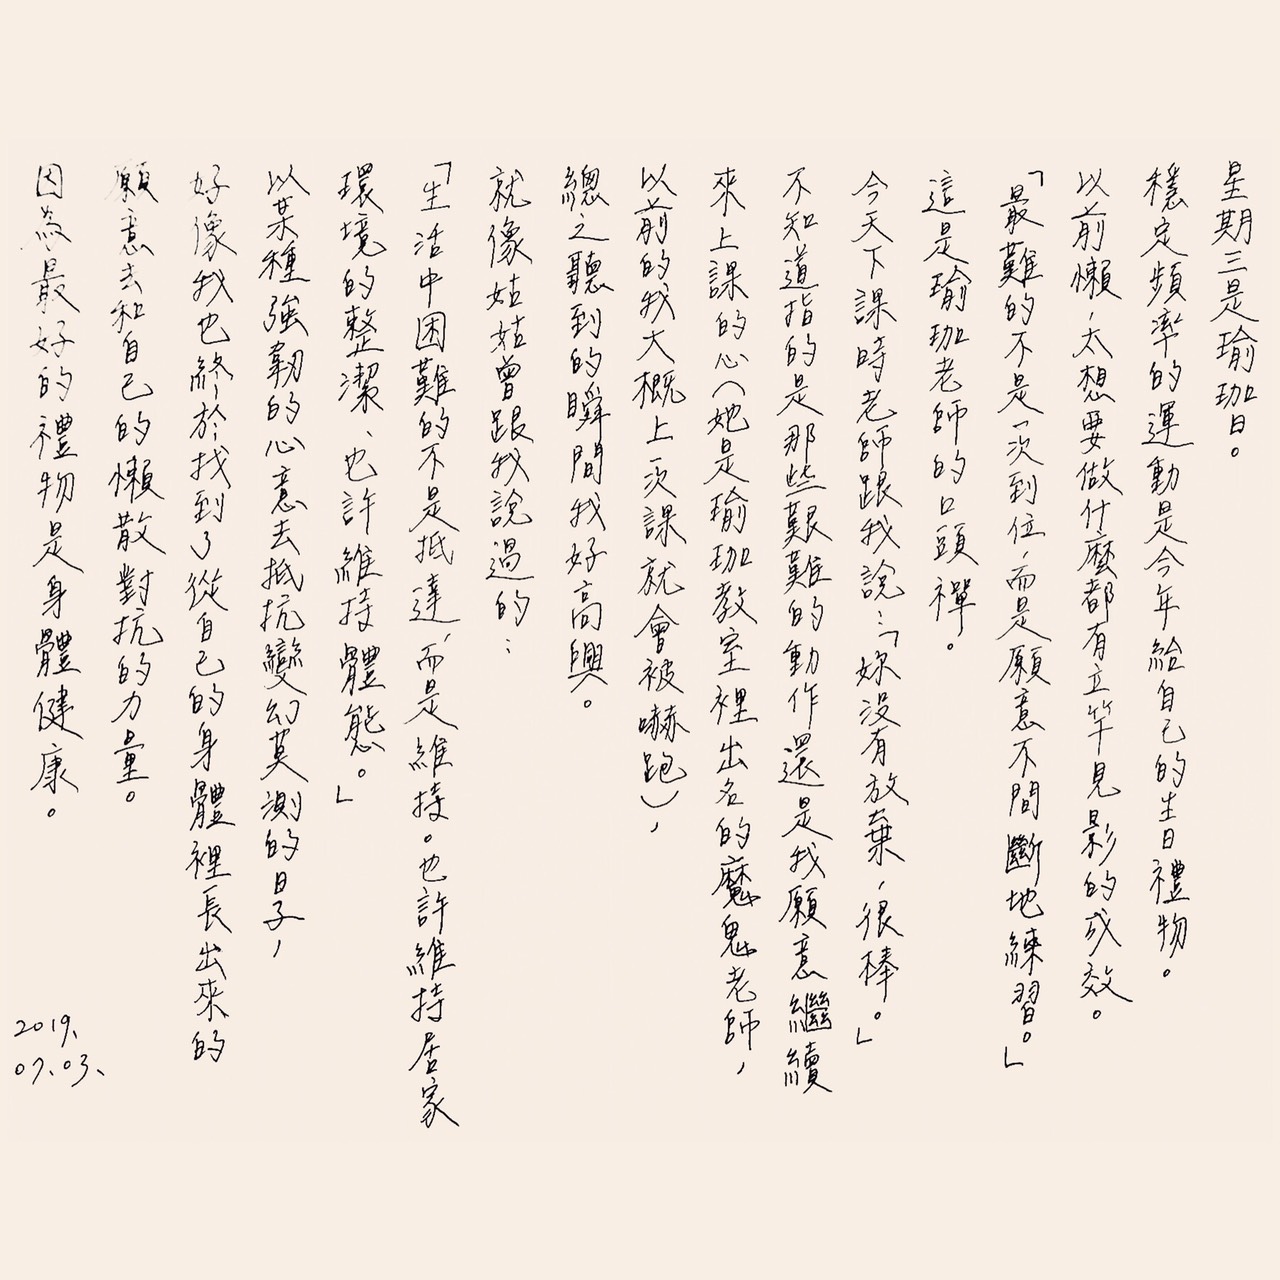 星期三是瑜珈日。
穩定頻率的運動是今年給自己的生日禮物。
以前懶，太想要做什麼都有立竿見影的成效。
「最難的不是一次到位，而是願意不間斷地練習。」
這是瑜珈老師的口頭禪。
今天下課時老師跟我說：「妳沒有放棄，很棒。」
不知道指的是那些艱難的動作還是我願意繼續
來上課的心（她是瑜珈教室裡出名的魔鬼老師，
以前的我大概上一次課就會被嚇跑），
總之聽到的瞬間我好高興。
就像姑姑曾跟我說過的：
「生活中困難的不是抵達，而是維持。也許維持居家
環境的整潔、也許維持體態。」
以某種強韌的心意去抵抗變幻莫測的日子，
好像我也終於找到了從自己的身體裡長出來的
願意去和自己的懶散對抗的力量。
因為最好的禮物是身體健康。
2019、
07、03、